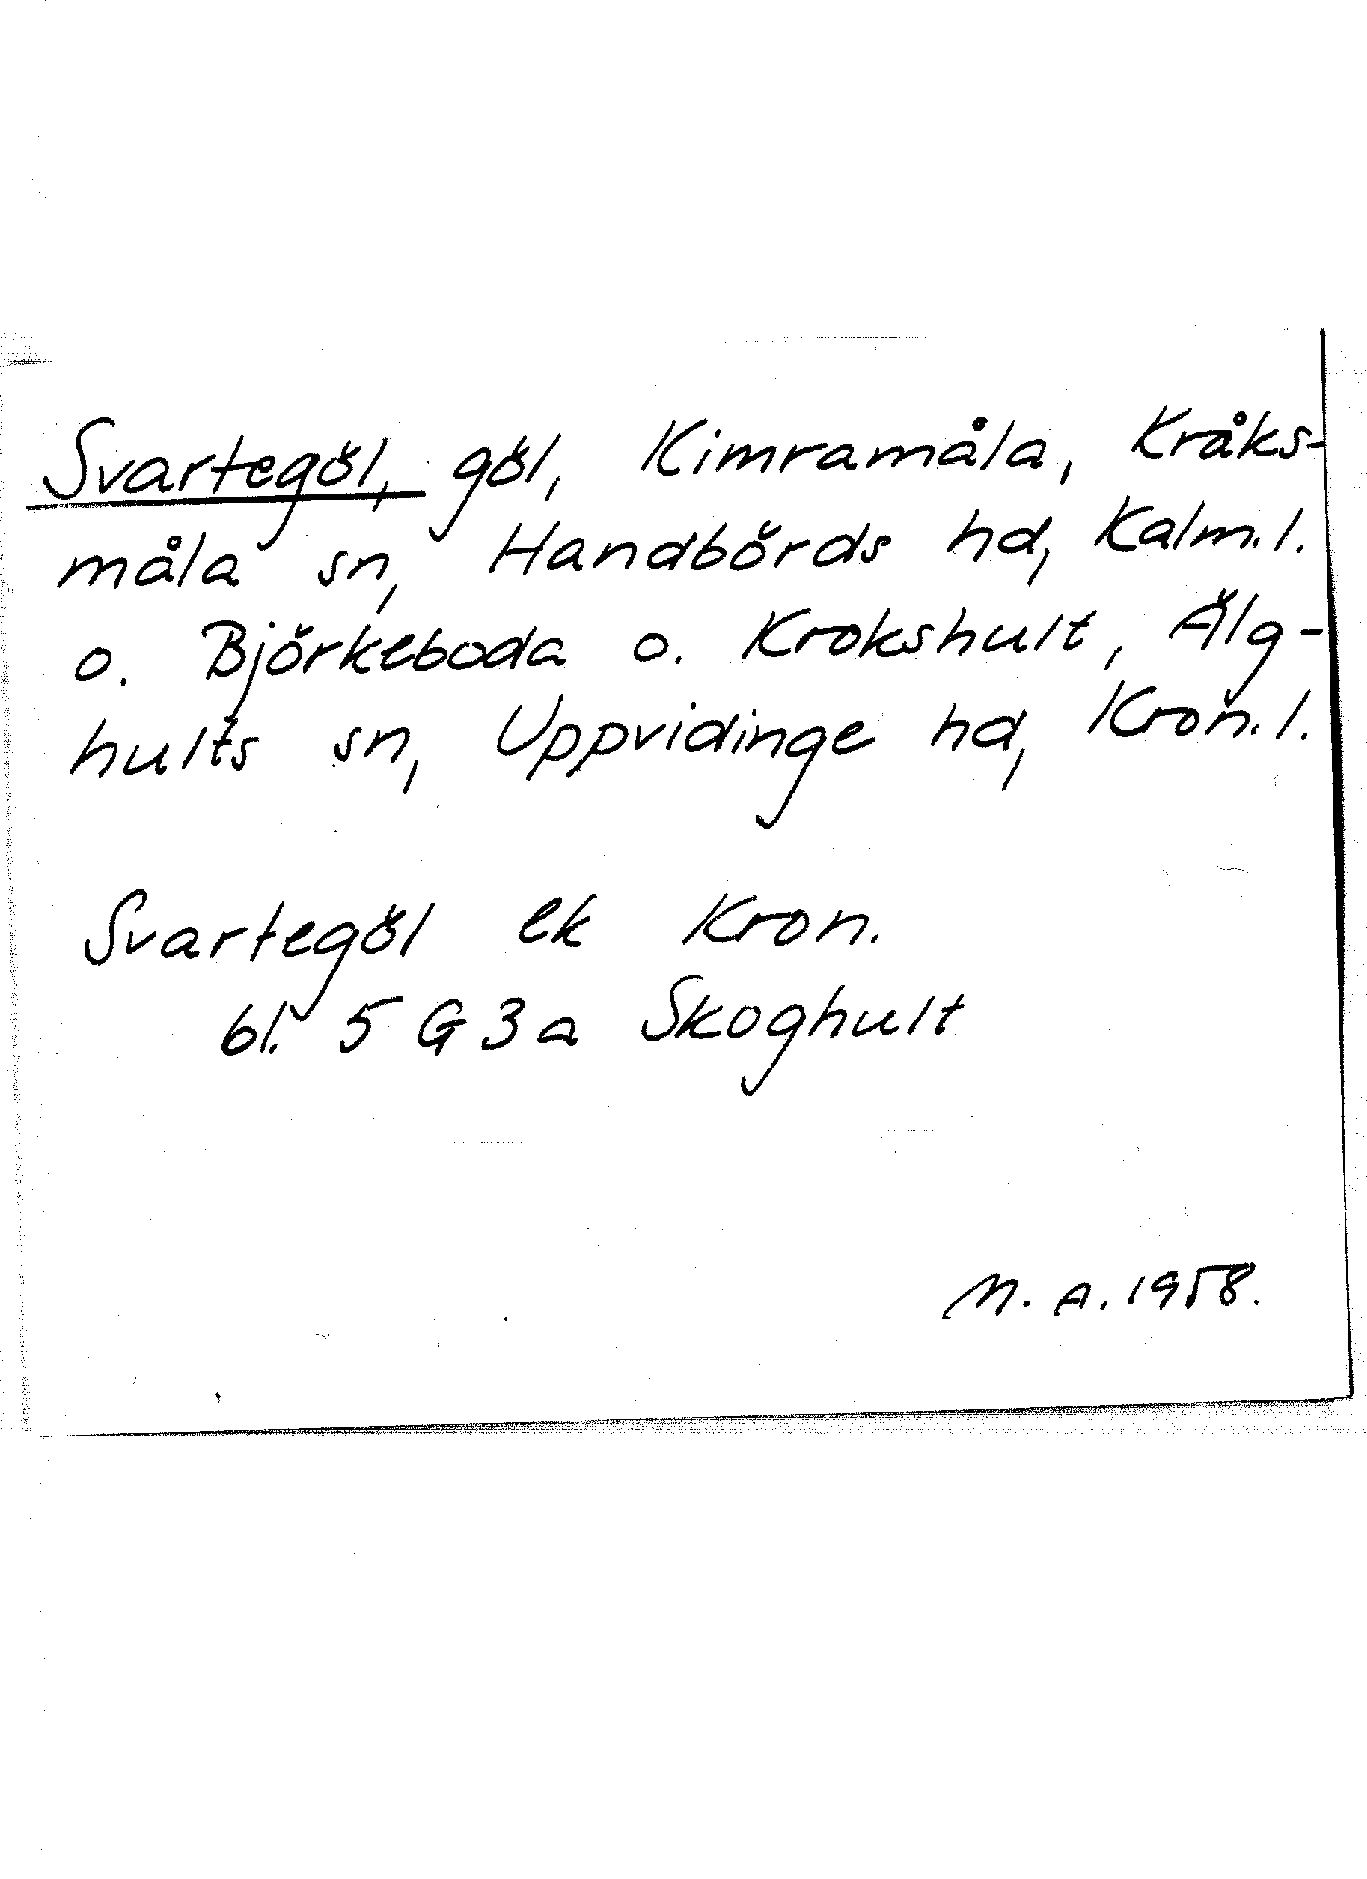 Svartegöl, göl, Kimramåla, Kråks-
måla sn, Handbörds hd, Kalm. l.
o. Björkeboda o. Krokshult, Älg-
hults sn, Uppvidinge hd, Kron. l.
Svartegöl ek Kron.
bl. 5 G 3a Skoghult
M. A. 1958.